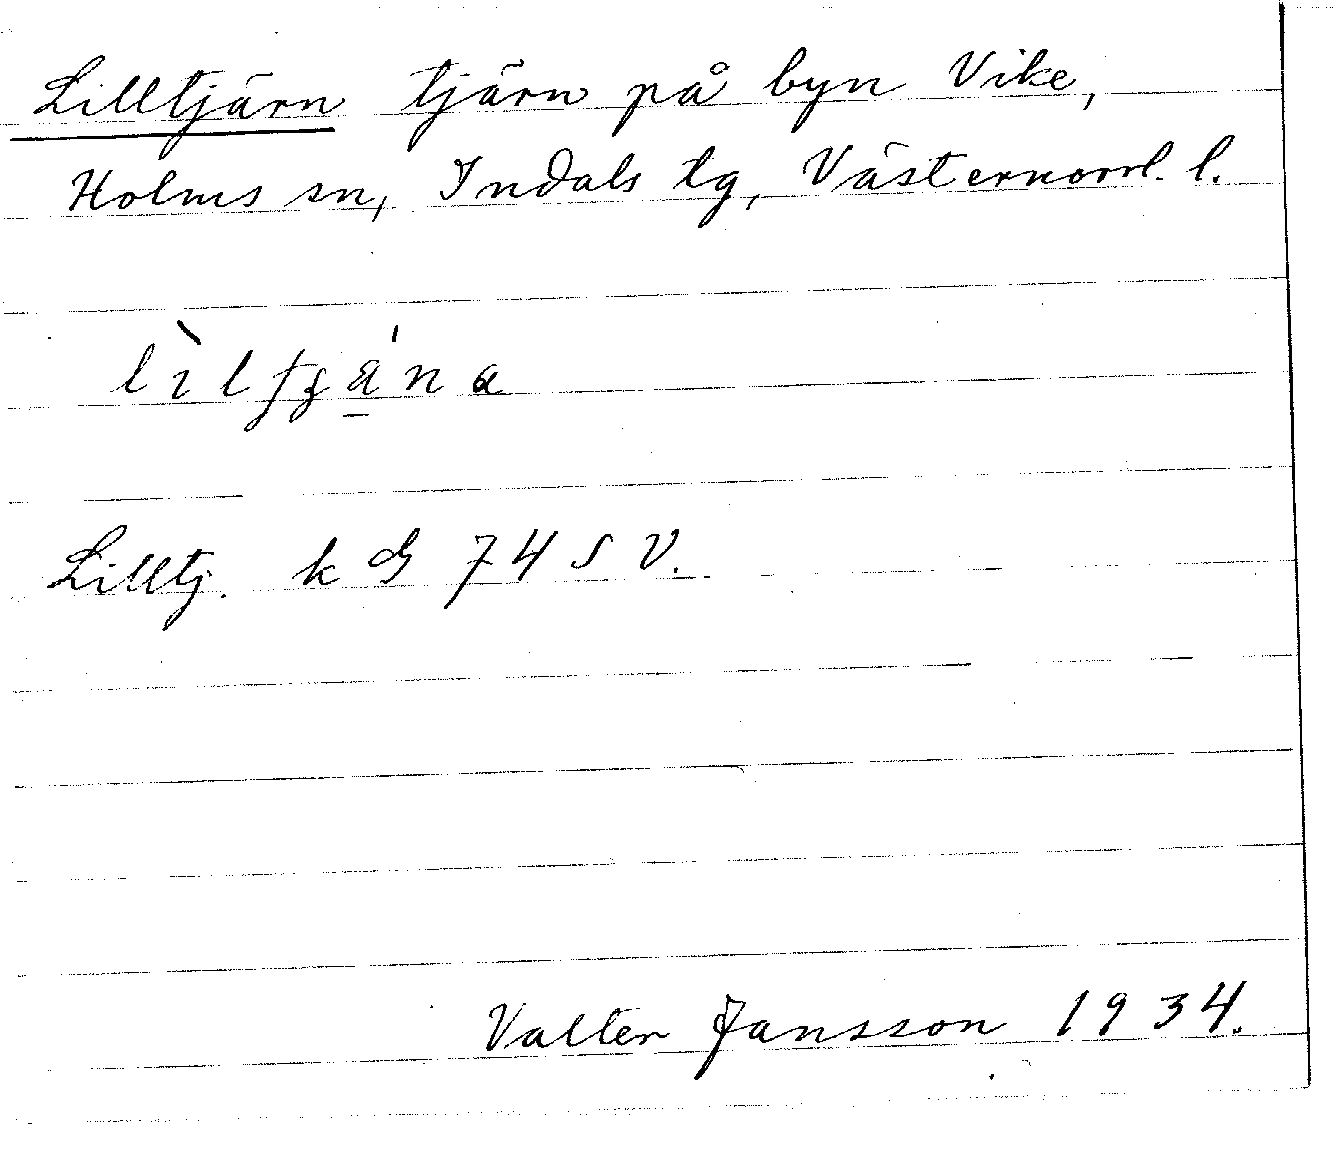 Lilltjärn tjärn på byn Vike,
Holms sn, Indals tg, Västernorrl. l.
Lilltj. k G 74 S V.
Valter Jansson 1934.